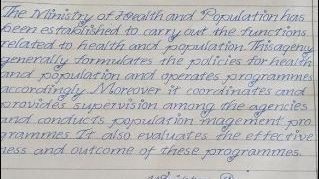 The Ministry of Health and Population has
been established to carry out the functions
related to health and population. This agency
generally formulates the policies for health
and population and operates programmes
accordingly. Moreover it coordinates and
provides supervision among the agencies
and conducts population magement pro
grammes. It also evaluates the effective
ness and outcome of these programmes.